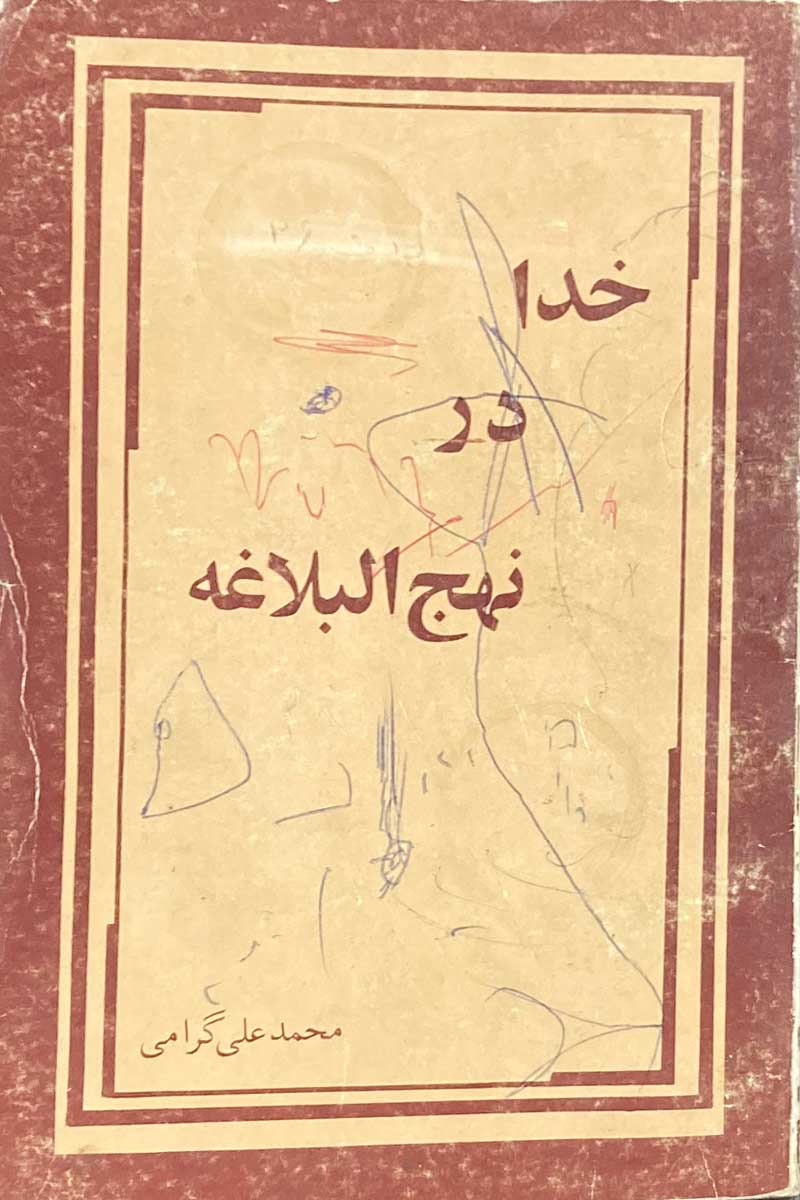 خدا
در
نهج البلاغه
محمد علی گرامی